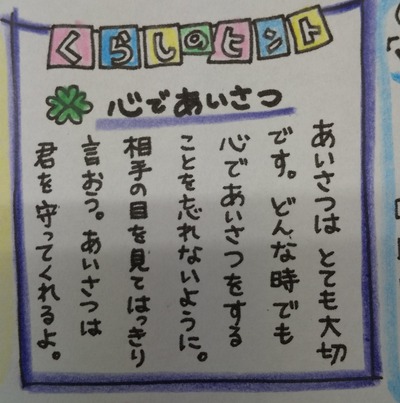 くらしのヒント
心であいさつ
あいさつは とても大切
です。どんな時でも
心であいさつをする
ことを忘れないように。
相手の目を見てはっきり
言おう。あいさつは
君を守ってくれるよ。